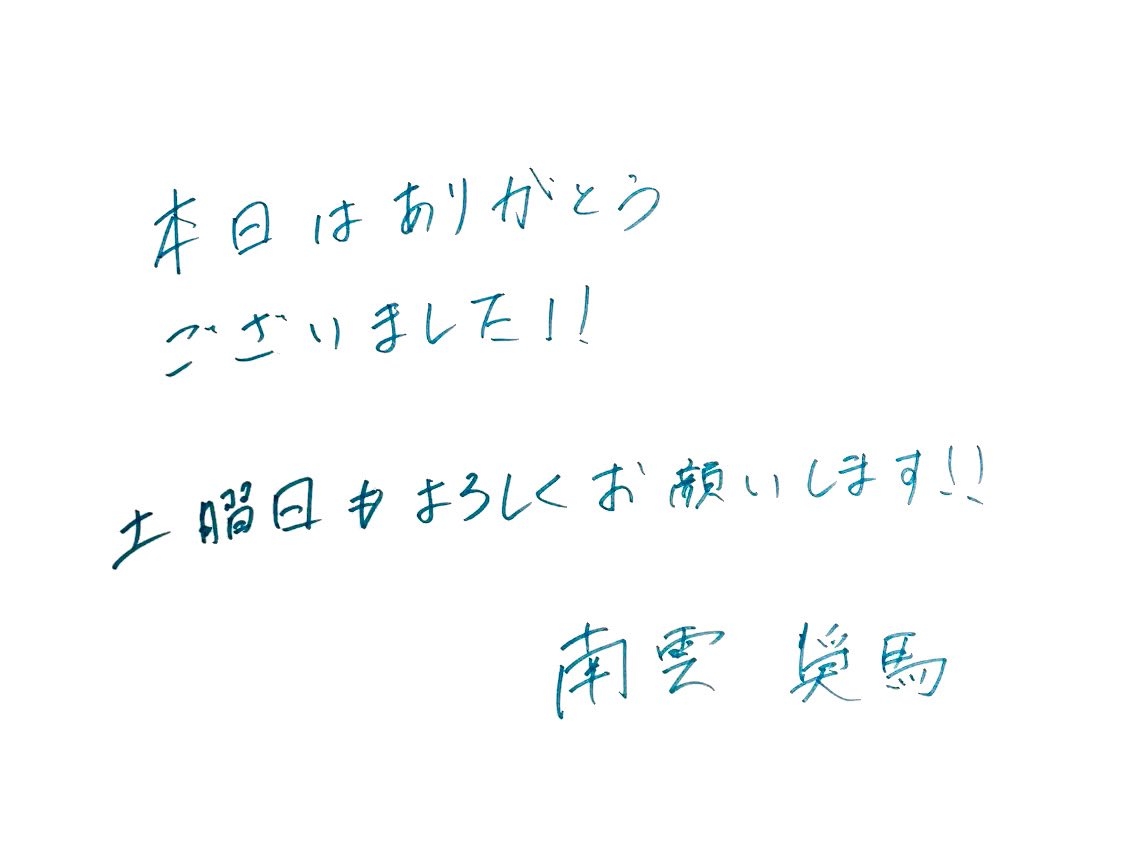 本日はありがとう
ございました!!
土曜日もよろしくお願いします!!
南雲 奨馬